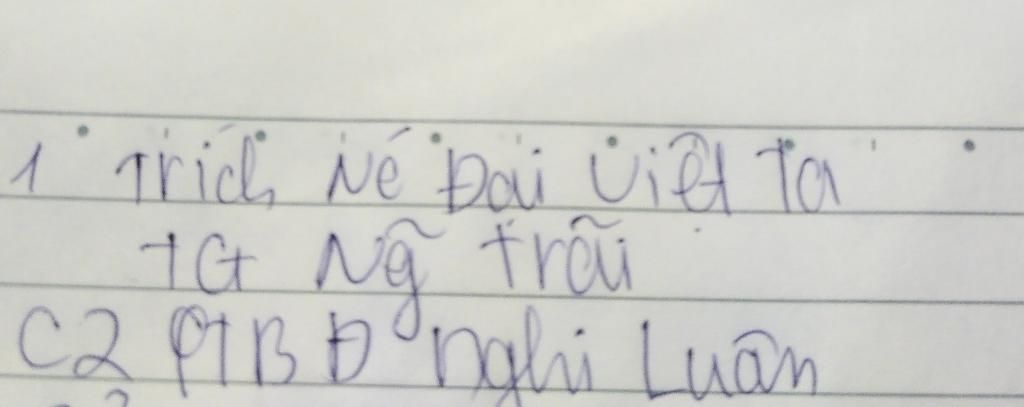 1 Trích Né Đại Việt Ta
TG Ng~ trãi
C2 PTBĐ nghi Luân